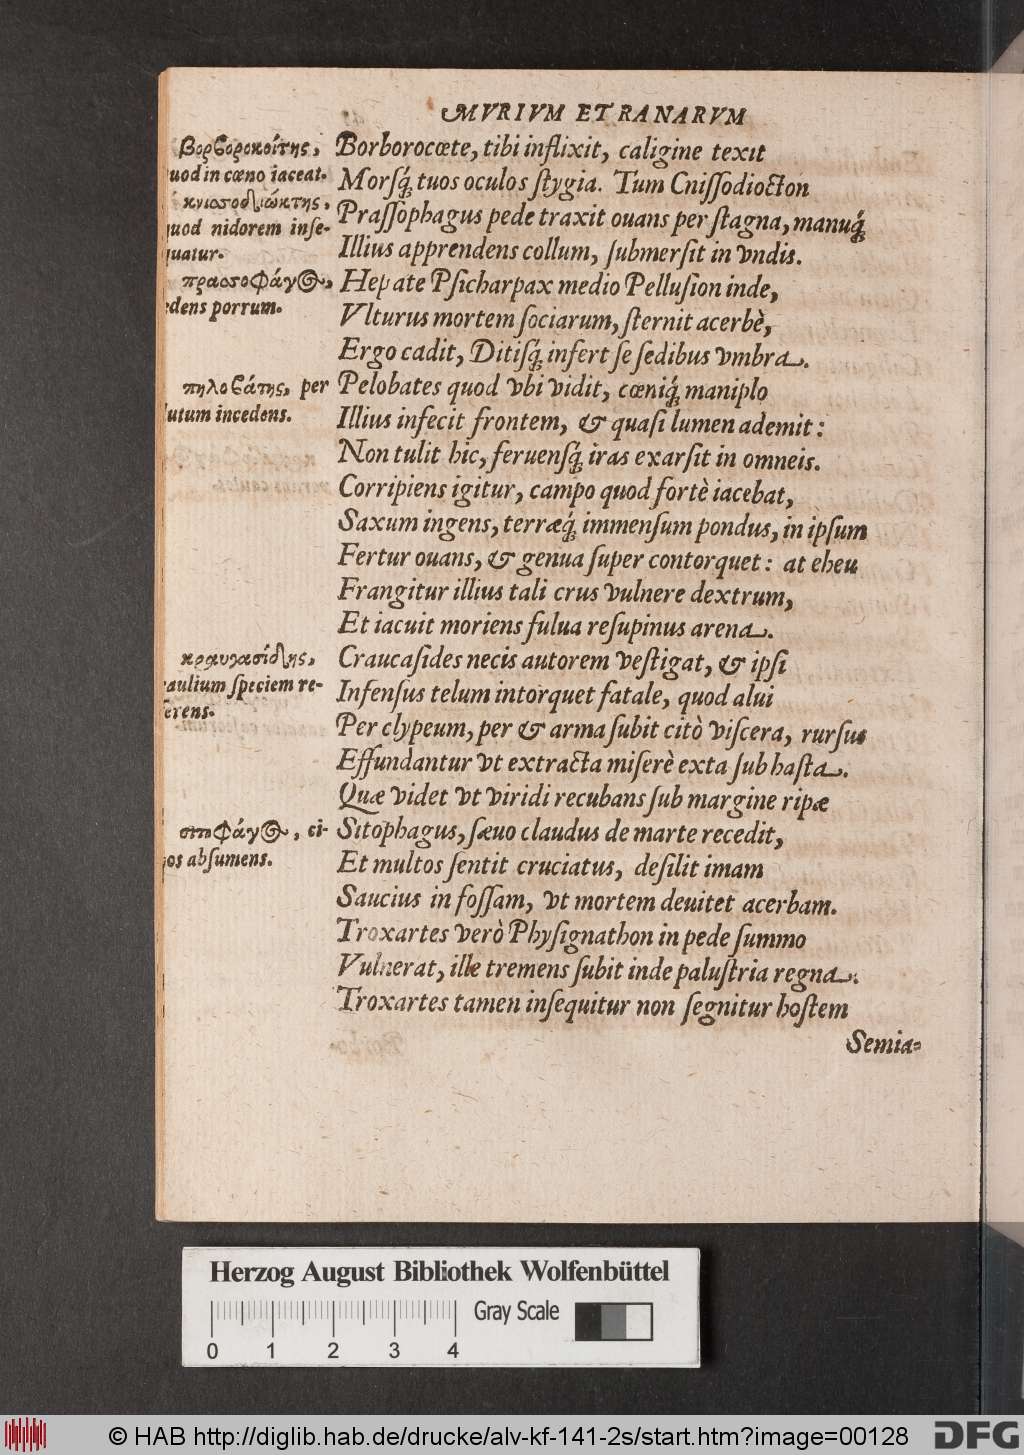 MVRIVM ET RANARVM
βορβοροκοίτης,
uod in cœno iaceat.
κνισσοδιώκτης,
uod nidorem inse-
quatur.
πρασσοφάγος,
edens porrum.
πηλοβάτης, per
lutum incedens.
κραυγασίδης,
aulium speciem re-
ferens.
σιτοφάγος, ci-
os absumens.
Borborocœte, tibi inflixit, caligine texit
Morsq́ꝫ tuos oculos stygia. Tum Cnissodiocton
Prassophagus pede traxit ouans per stagna, manuq́ꝫ
Illius apprendens collum, submersit in vndis.
Hepate Psicharpax medio Pellusion inde,
Vlturus mortem sociarum, sternit acerbè,
Ergo cadit, Ditisq́ꝫ infert se sedibus vmbra.
Pelobates quod vbi vidit, cœniq́ꝫ maniplo
Illius infecit frontem, & quasi lumen ademit:
Non tulit hic, feruensq́ꝫ iras exarsit in omneis.
Corripiens igitur, campo quod fortè iacebat,
Saxum ingens, terræq́ꝫ immensum pondus, in ipsum
Fertur ouans, & genua super contorquet: at eheu
Frangitur illius tali crus vulnere dextrum,
Et iacuit moriens fulua resupinus arena.
Craucasides necis autorem vestigat, & ipsi
Infensus telum intorquet fatale, quod alui
Per clypeum, per & arma subit citò viscera, rursus
Effundantur vt extracta miserè exta sub hasta.
Quæ videt vt viridi recubans sub margine ripæ
Sitophagus, sæuo claudus de marte recedit,
Et multos sentit cruciatus, desilit imam
Saucius in fossam, vt mortem deuitet acerbam.
Troxartes verò Physignathon in pede summo
Vulnerat, ille tremens subit inde palustria regna.
Troxartes tamen insequitur non segnitur hostem
Semia-
Herzog August Bibliothek Wolfenbüttel
Gray Scale
0 1 2 3 4
© HAB http://diglib.hab.de/drucke/alv-kf-141-2s/start.htm?image=00128
DFG